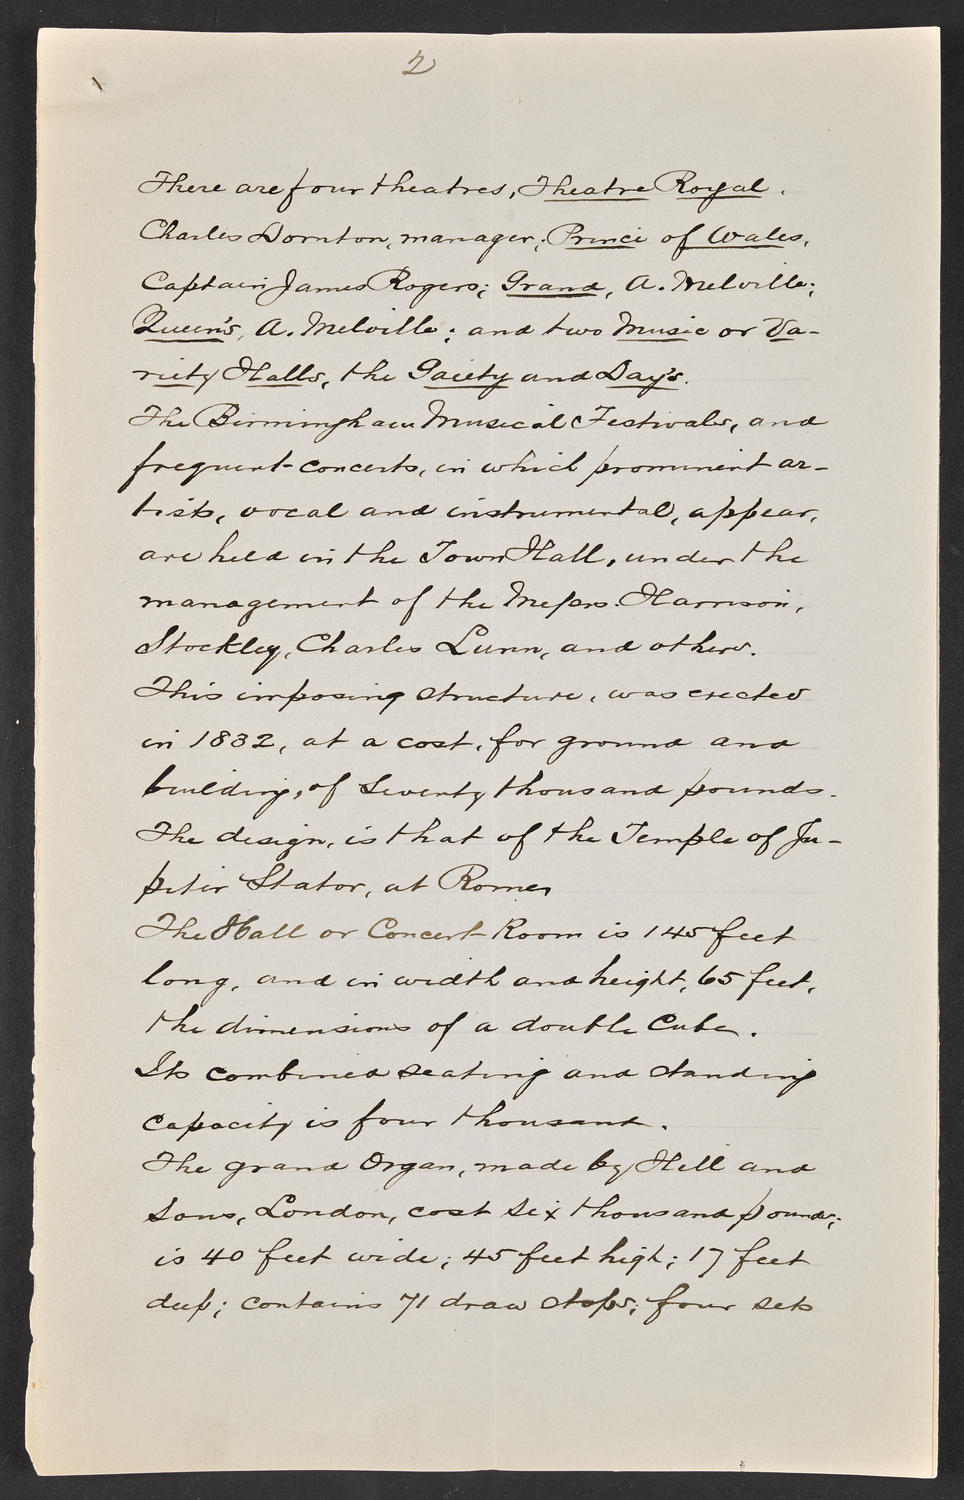 2
There are four theatres, Theatre Royal.
Charles Dornton, manager; Prince of Wales,
Captain James Rogers; Grand, A. Melville;
Queen's, A. Melville; and two Music or Va-
riety Halls, the Gaiety and Day's.
The Birmingham Musical Festivals, and
frequent concerts, in which prominent ar-
tists, vocal and instrumental, appear,
are held in the Town Hall, under the
management of the Messrs. Harrison,
Stockley, Charles Lunn, and others.
This imposing structure, was erected
in 1832, at a cost, for ground and
building, of seventy thousand pounds.
The design, is that of the Temple of Ju-
piter Stator, at Rome,
The Hall or Concert Room is 145 feet
long, and in width and height, 65 feet,
the dimensions of a double Cube.
Its combined seating and standing
capacity is four thousand.
The grand Organ, made by Hill and
Sons, London, cost six thousand pounds;
is 40 feet wide; 45 feet high; 17 feet
deep; contains 71 draw stops; four sets